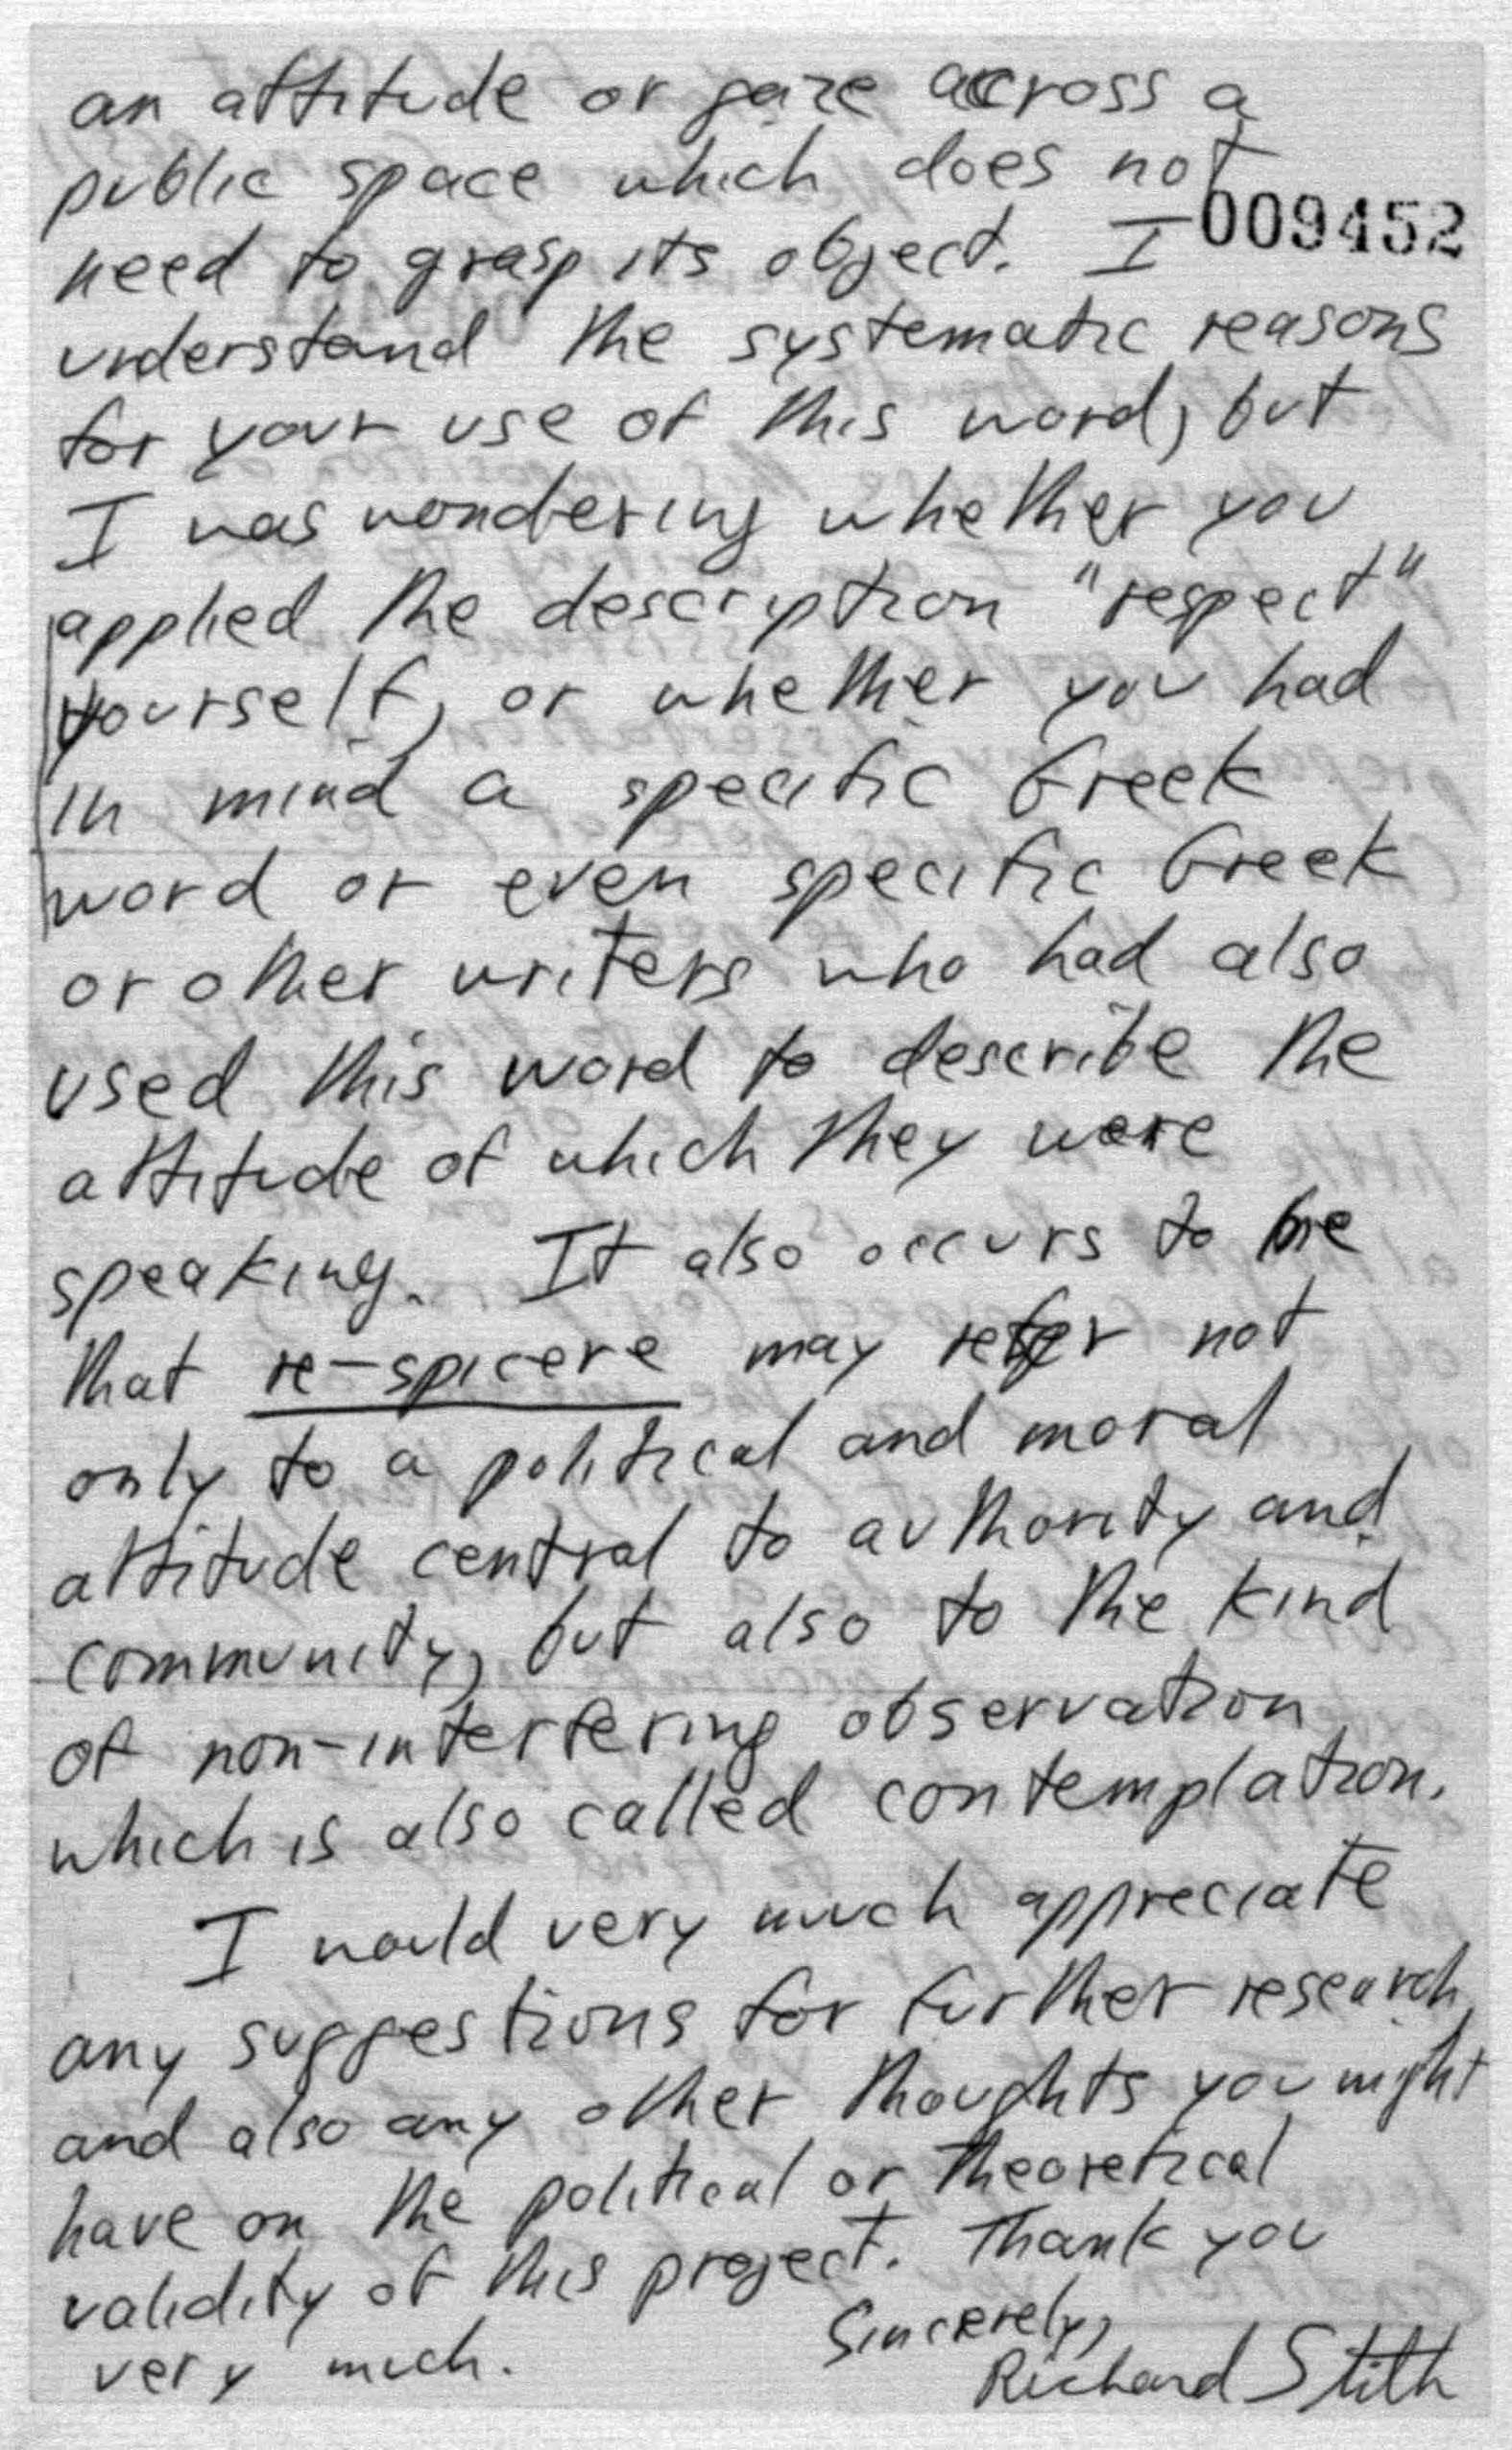 an attitude or gaze across a
public space which does not
009452
need to grasp its object. I
understand the systematic reasons
for your use of this word, but
I was wondering whether you
applied the description "respect"
yourself, or whether you had
in mind a specific Greek
word or even specific Greek
or other writers who had also
used this word to describe the
attitude of which they were
speaking. It also occurs to me
that re-spicere may refer not
only to a political and moral
attitude central to authority and
community, but also to the kind
of non-interfering observation
which is also called contemplation.
I would very much appreciate
any suggestions for further research,
and also any other thoughts you might
have on the political or theoretical
validity of this project. Thank you
very much.
Sincerely,
Richard Stith